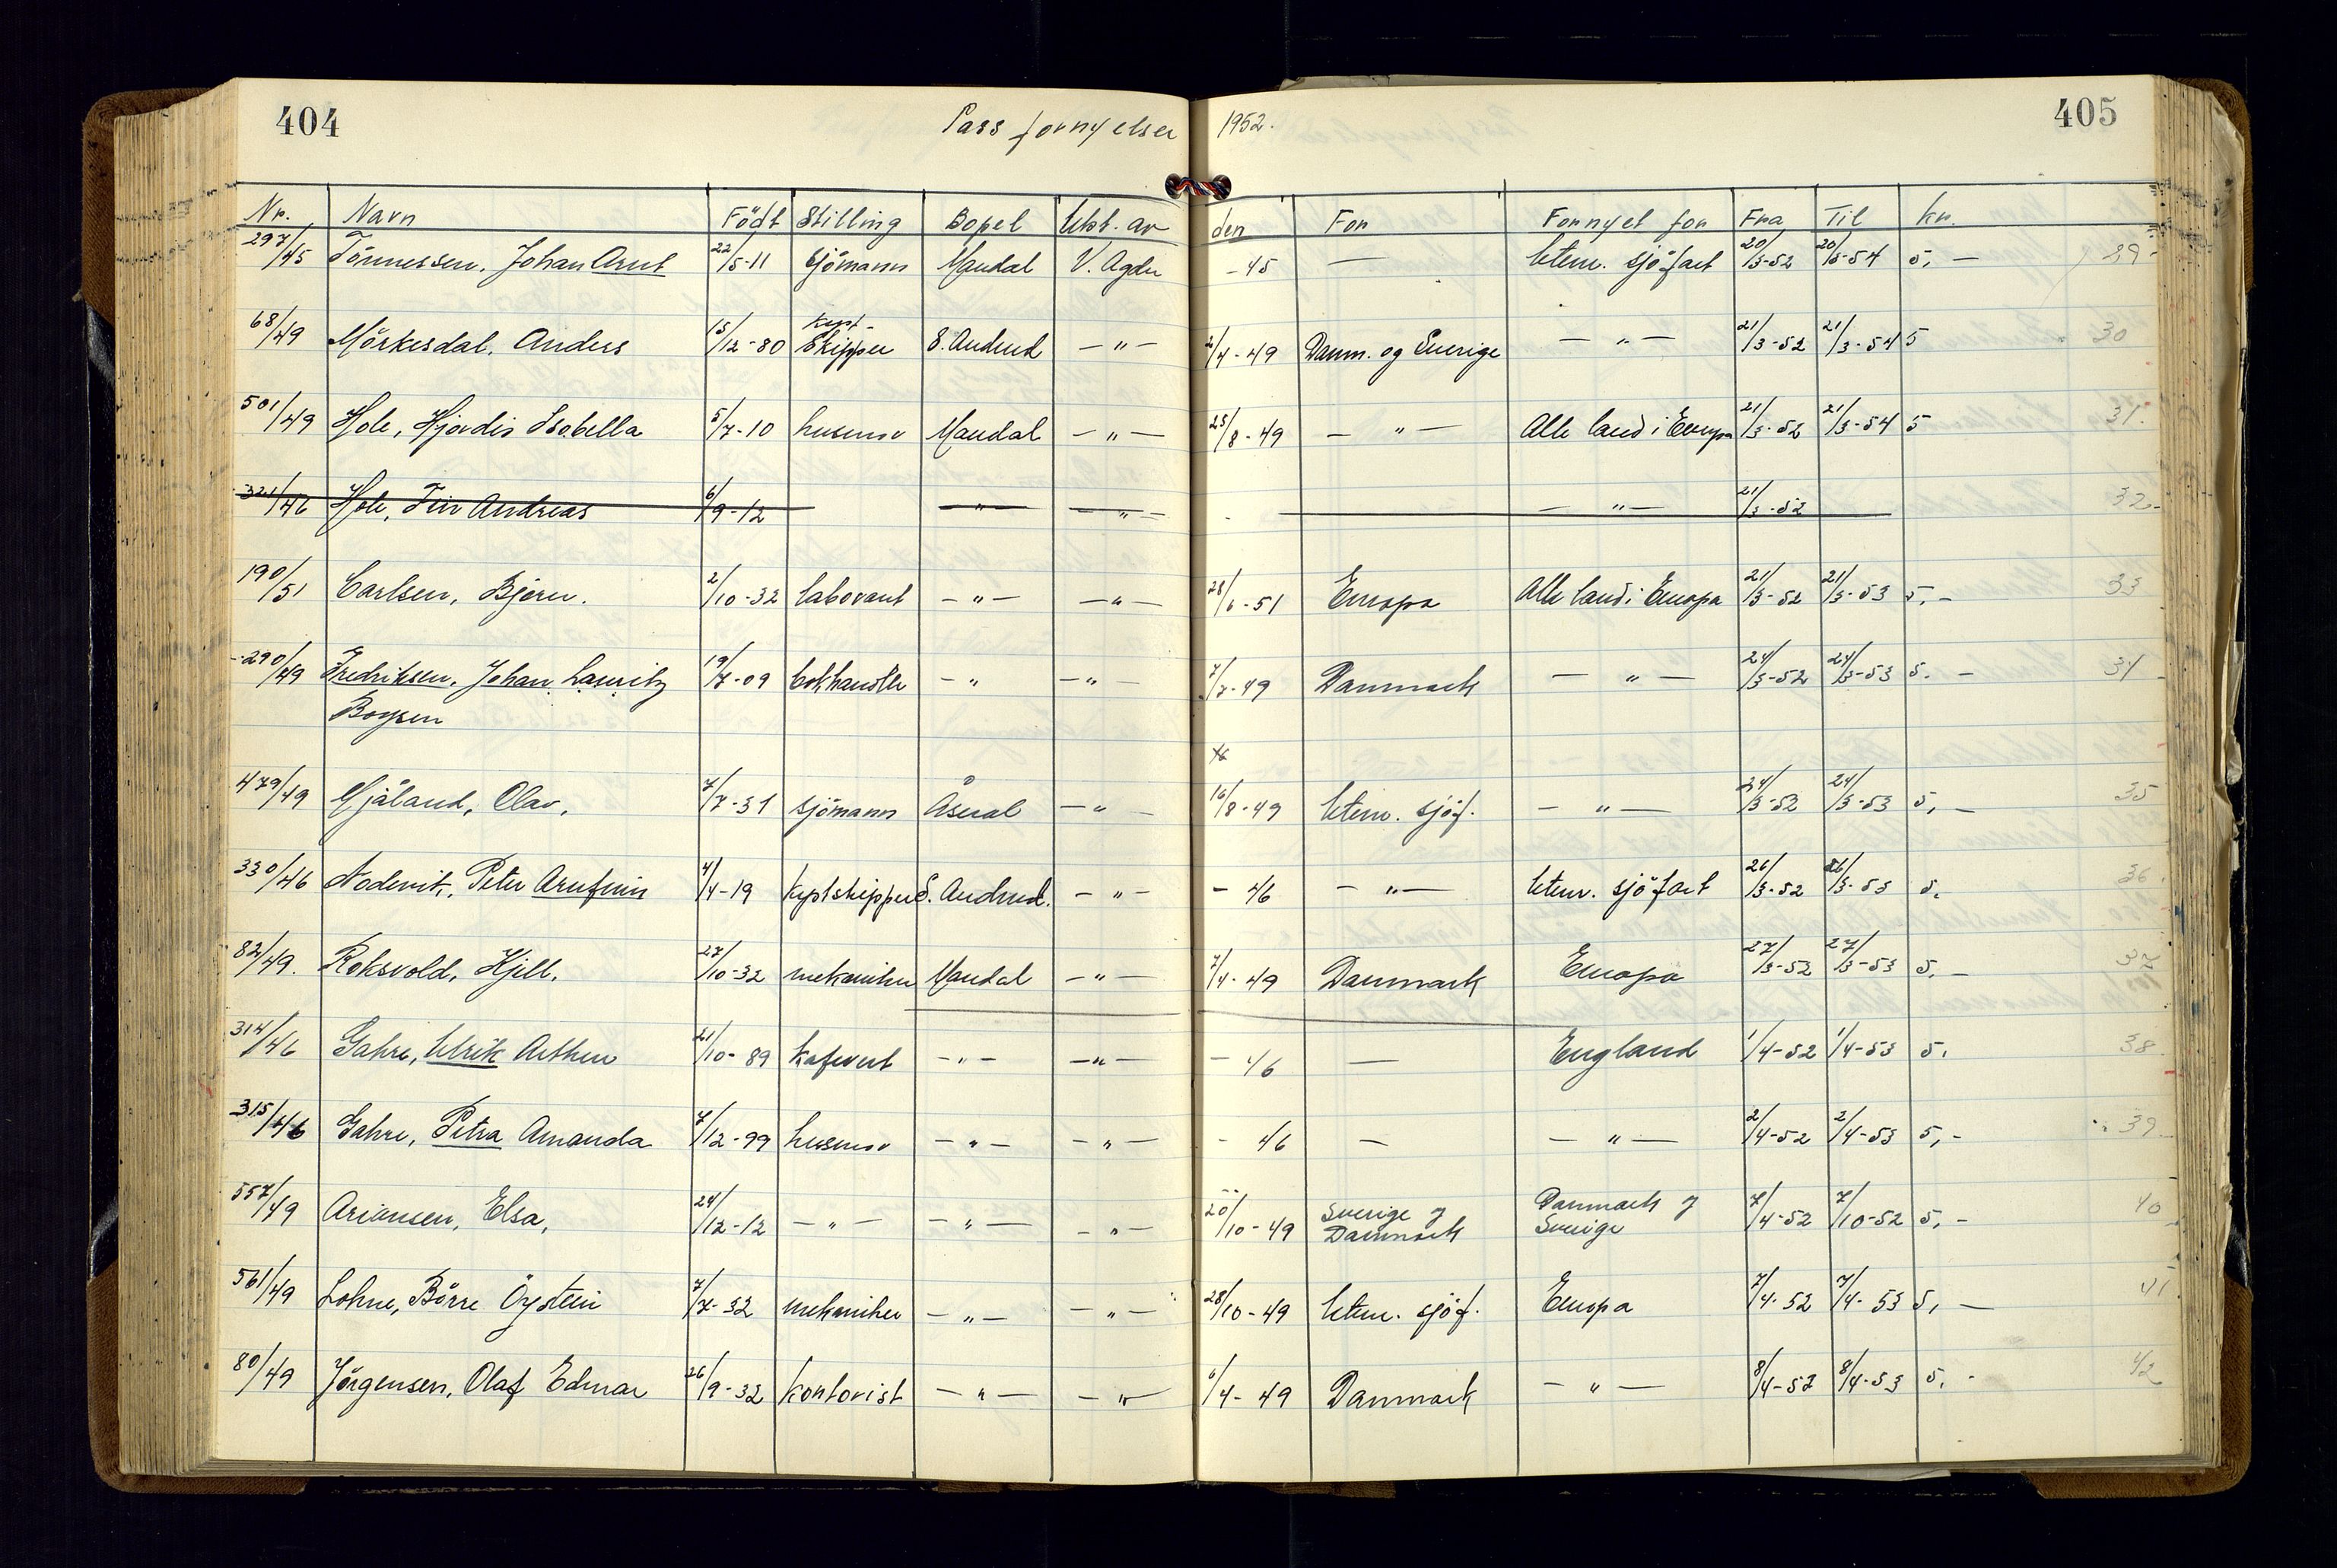 404 Pass fornyelser 1952. 405
Nr. Navn Födt Stilling Bopel Utst. av den For Fornyet for Fra Til kr.
297/45 Tönnessen, Johan Arnt 22/5-11 Sjömann Mandal V. Agder -45 — Uten. sjöfart 20/3-52 20/3-54 5, — 29
kyst-
68/49 Mörkesdal, Anders 15/12-80 Skipper S. Audned — " — 2/4-49 Danm. og Sverige — " — 21/3-52 21/3-54 5 30
501/49 Hole, Hjördis Isobella 5/7-10 husmor Mandal — " — 25/8-49 — " — Alle land i Europa 21/3-52 21/3-54 5 31.
321/46 Hole, Finn Andreas 6/9-12 — " — — " — — " — 21/3-52 32.
190/51 Carlsen, Bjørn. 2/10-32 laborant — " — — " — 28/6-51 Europa Alle land i Europa 21/3-52 21/3-53 5, — 33
290/49 Fredriksen, Johan Lauritz 19/7-09 bokhandler — " — " — 7/7-49 Danmark — " — 24/3-52 24/3-53 5. — 34
Boysen
479/49 Mjåland, Olav, 7/7-31 sjömann Åseral — " — 16/8-49 Uten. sjöf. — " — 24/3-52 24/3-53 5, — 35
330/46 Nodevik, Peter Arnfinn 4/4-19 kystskipper S. Audned. — " — - 46 — " — Uten. sjöfart 26/3-52 26/3-53 5. 36
82/49. Roksvold, Kjell, 27/10-32 mekaniker Mandal — " — 7/4-49 Danmark Europa 27/3-52 27/3-53 5. — 37
314/46 Gahre, Ulrik Arthur 21/10-89 kafevert — " — — " — - 46 — England 1/4-52 1/4-53 5. 38
315/46 Gahre, Petra Amanda 7/12-99 husmor — " — — " — - 46 — — " — 2/4-52 2/4-53 5, - 39
557/49 Ariansen, Elsa, 24/12-12 — " — — " — — " — 20/10-49 Sverige og Danmark Danmark og Sverige 7/4-52 7/10-52 5, - 40
561/49 Lohne, Börre Öystein 7/7-32 mekaniker — " — — " — 28/10-49 Uten. sjöf. Europa 7/4-52 7/4-53 5, — 41
80/49 Jörgensen, Olaf Edmar 26/9-32 kontorist — " — — " — 6/4-49 Danmark — " — 8/4-52 8/4-53 5. - 42